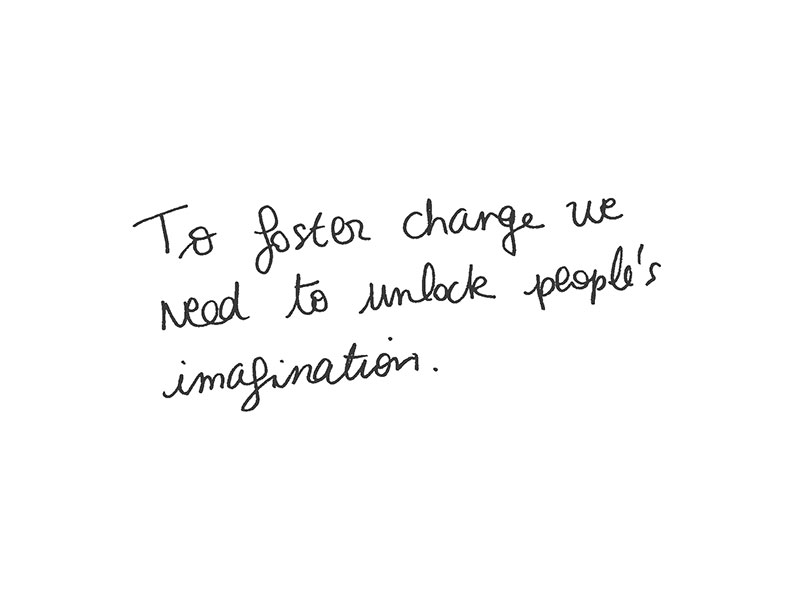 To foster change we
need to unlock people's
imagination.